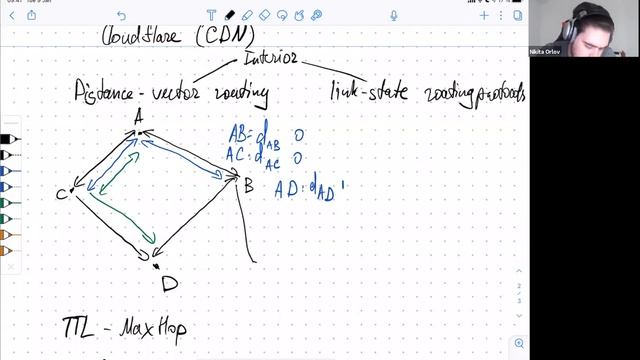 Cloudflare (CDN)
Interior
Distance-vector routing
link-state routing protocols
A
AB: d_AB 0
AC: d_AC 0
C
B
AD: d_AD 1
D
TTL - Max Hop
Nikita Orlov